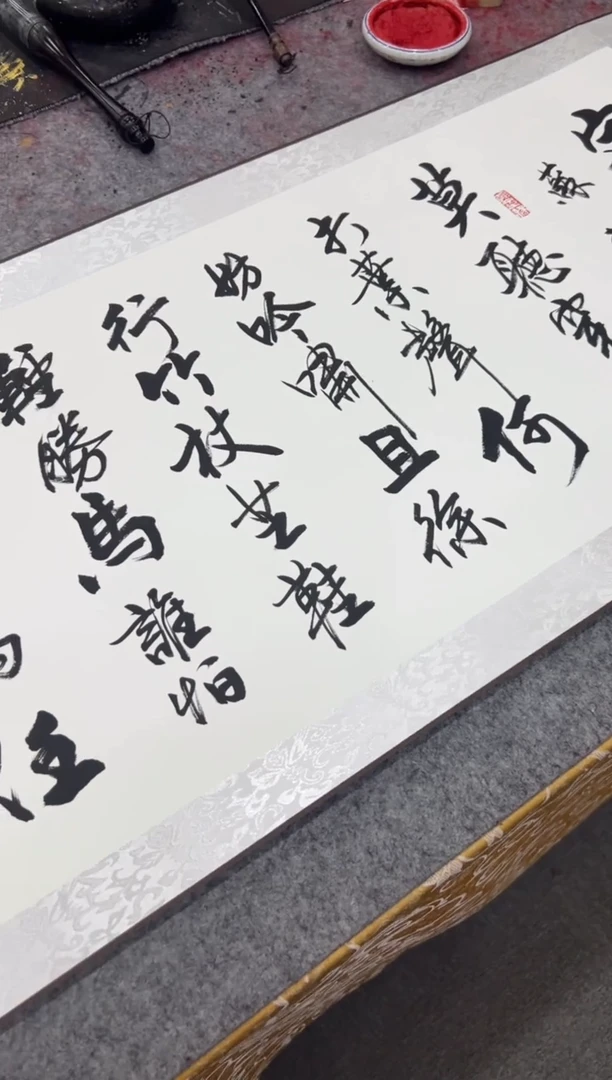 莫聽穿
打葉聲何
妨吟嘯且徐
行竹杖芒鞋
輕勝馬誰怕
任